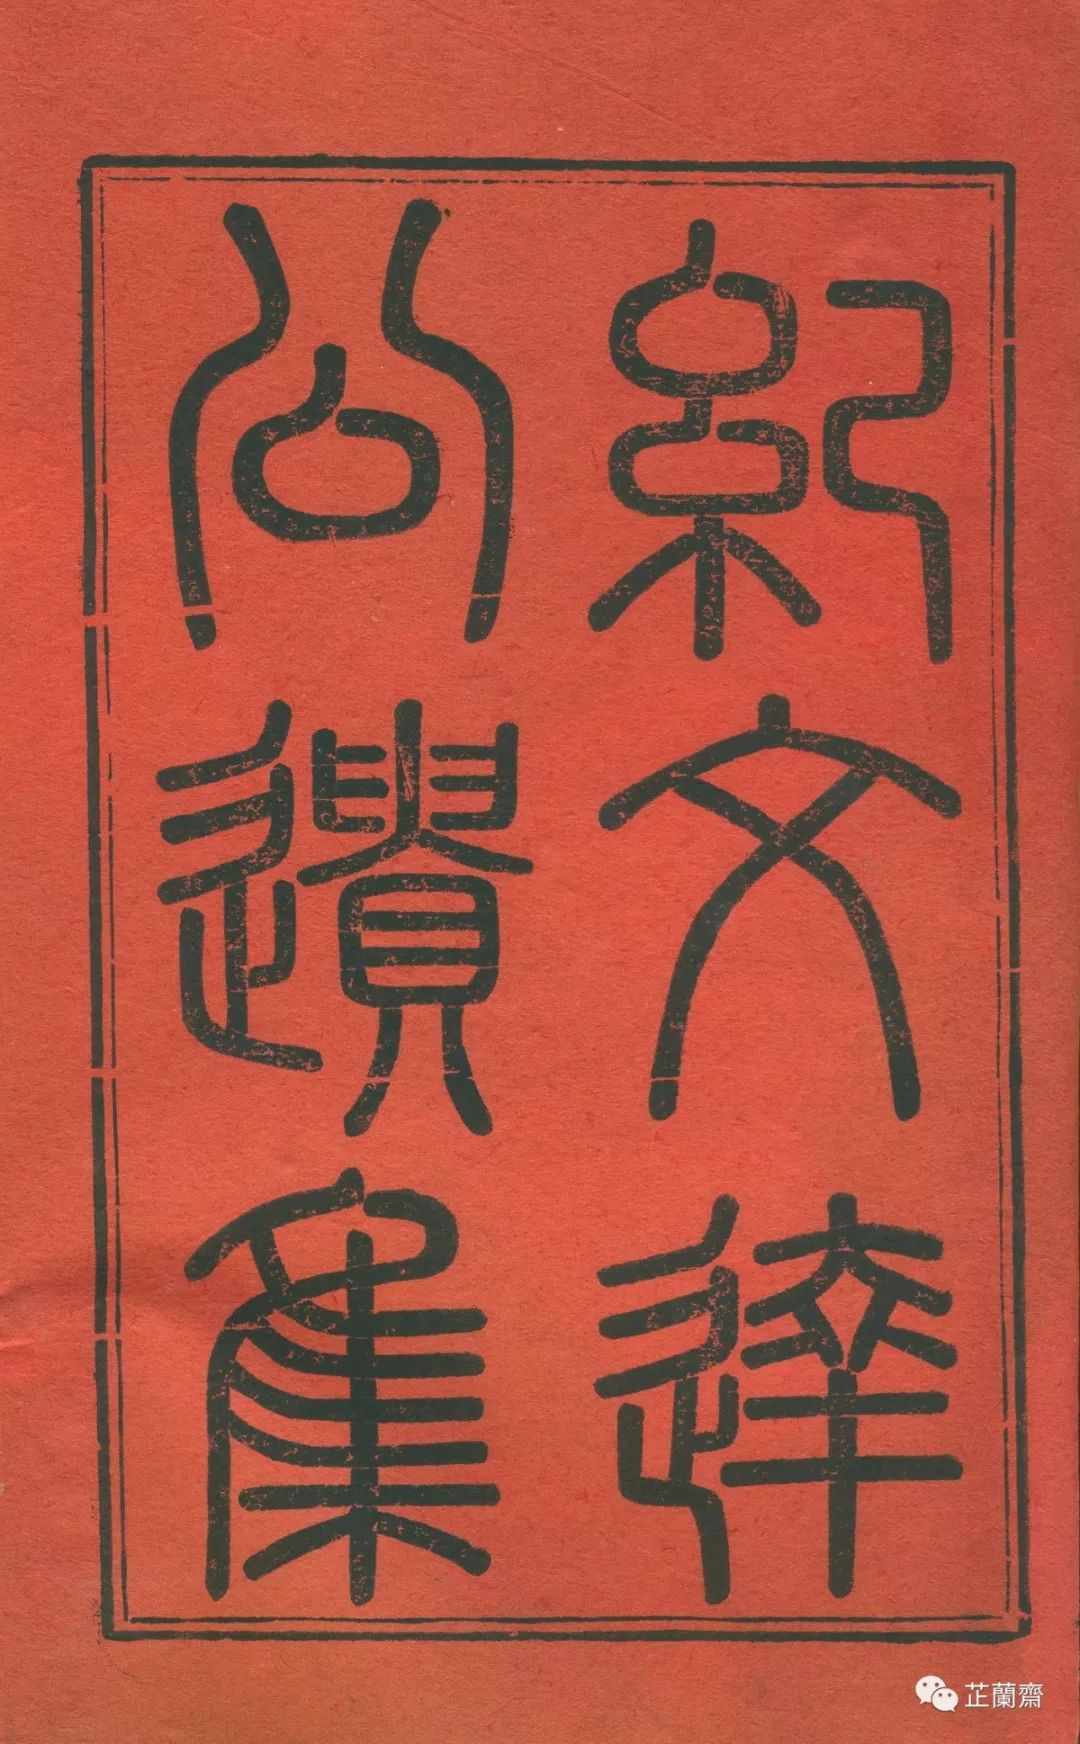 紀文達
公遺集
芷蘭齋